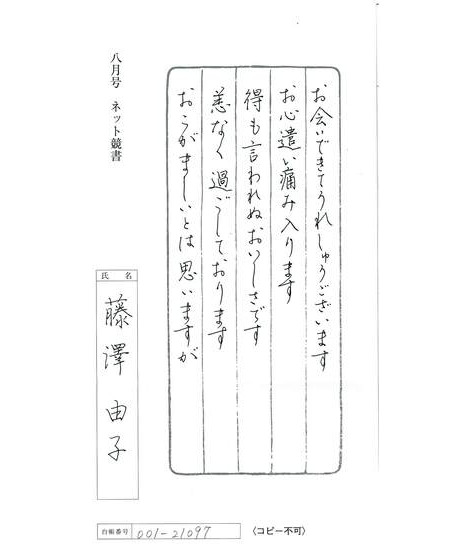 お会いできてうれしゅうございます
お心遣い痛み入ります
得も言われぬおいしさです
恙なく過ごしております
おこがましいとは思いますが
八月号 ネット競書
氏名
藤澤由子
台帳番号 001-21097
〈コピー不可〉